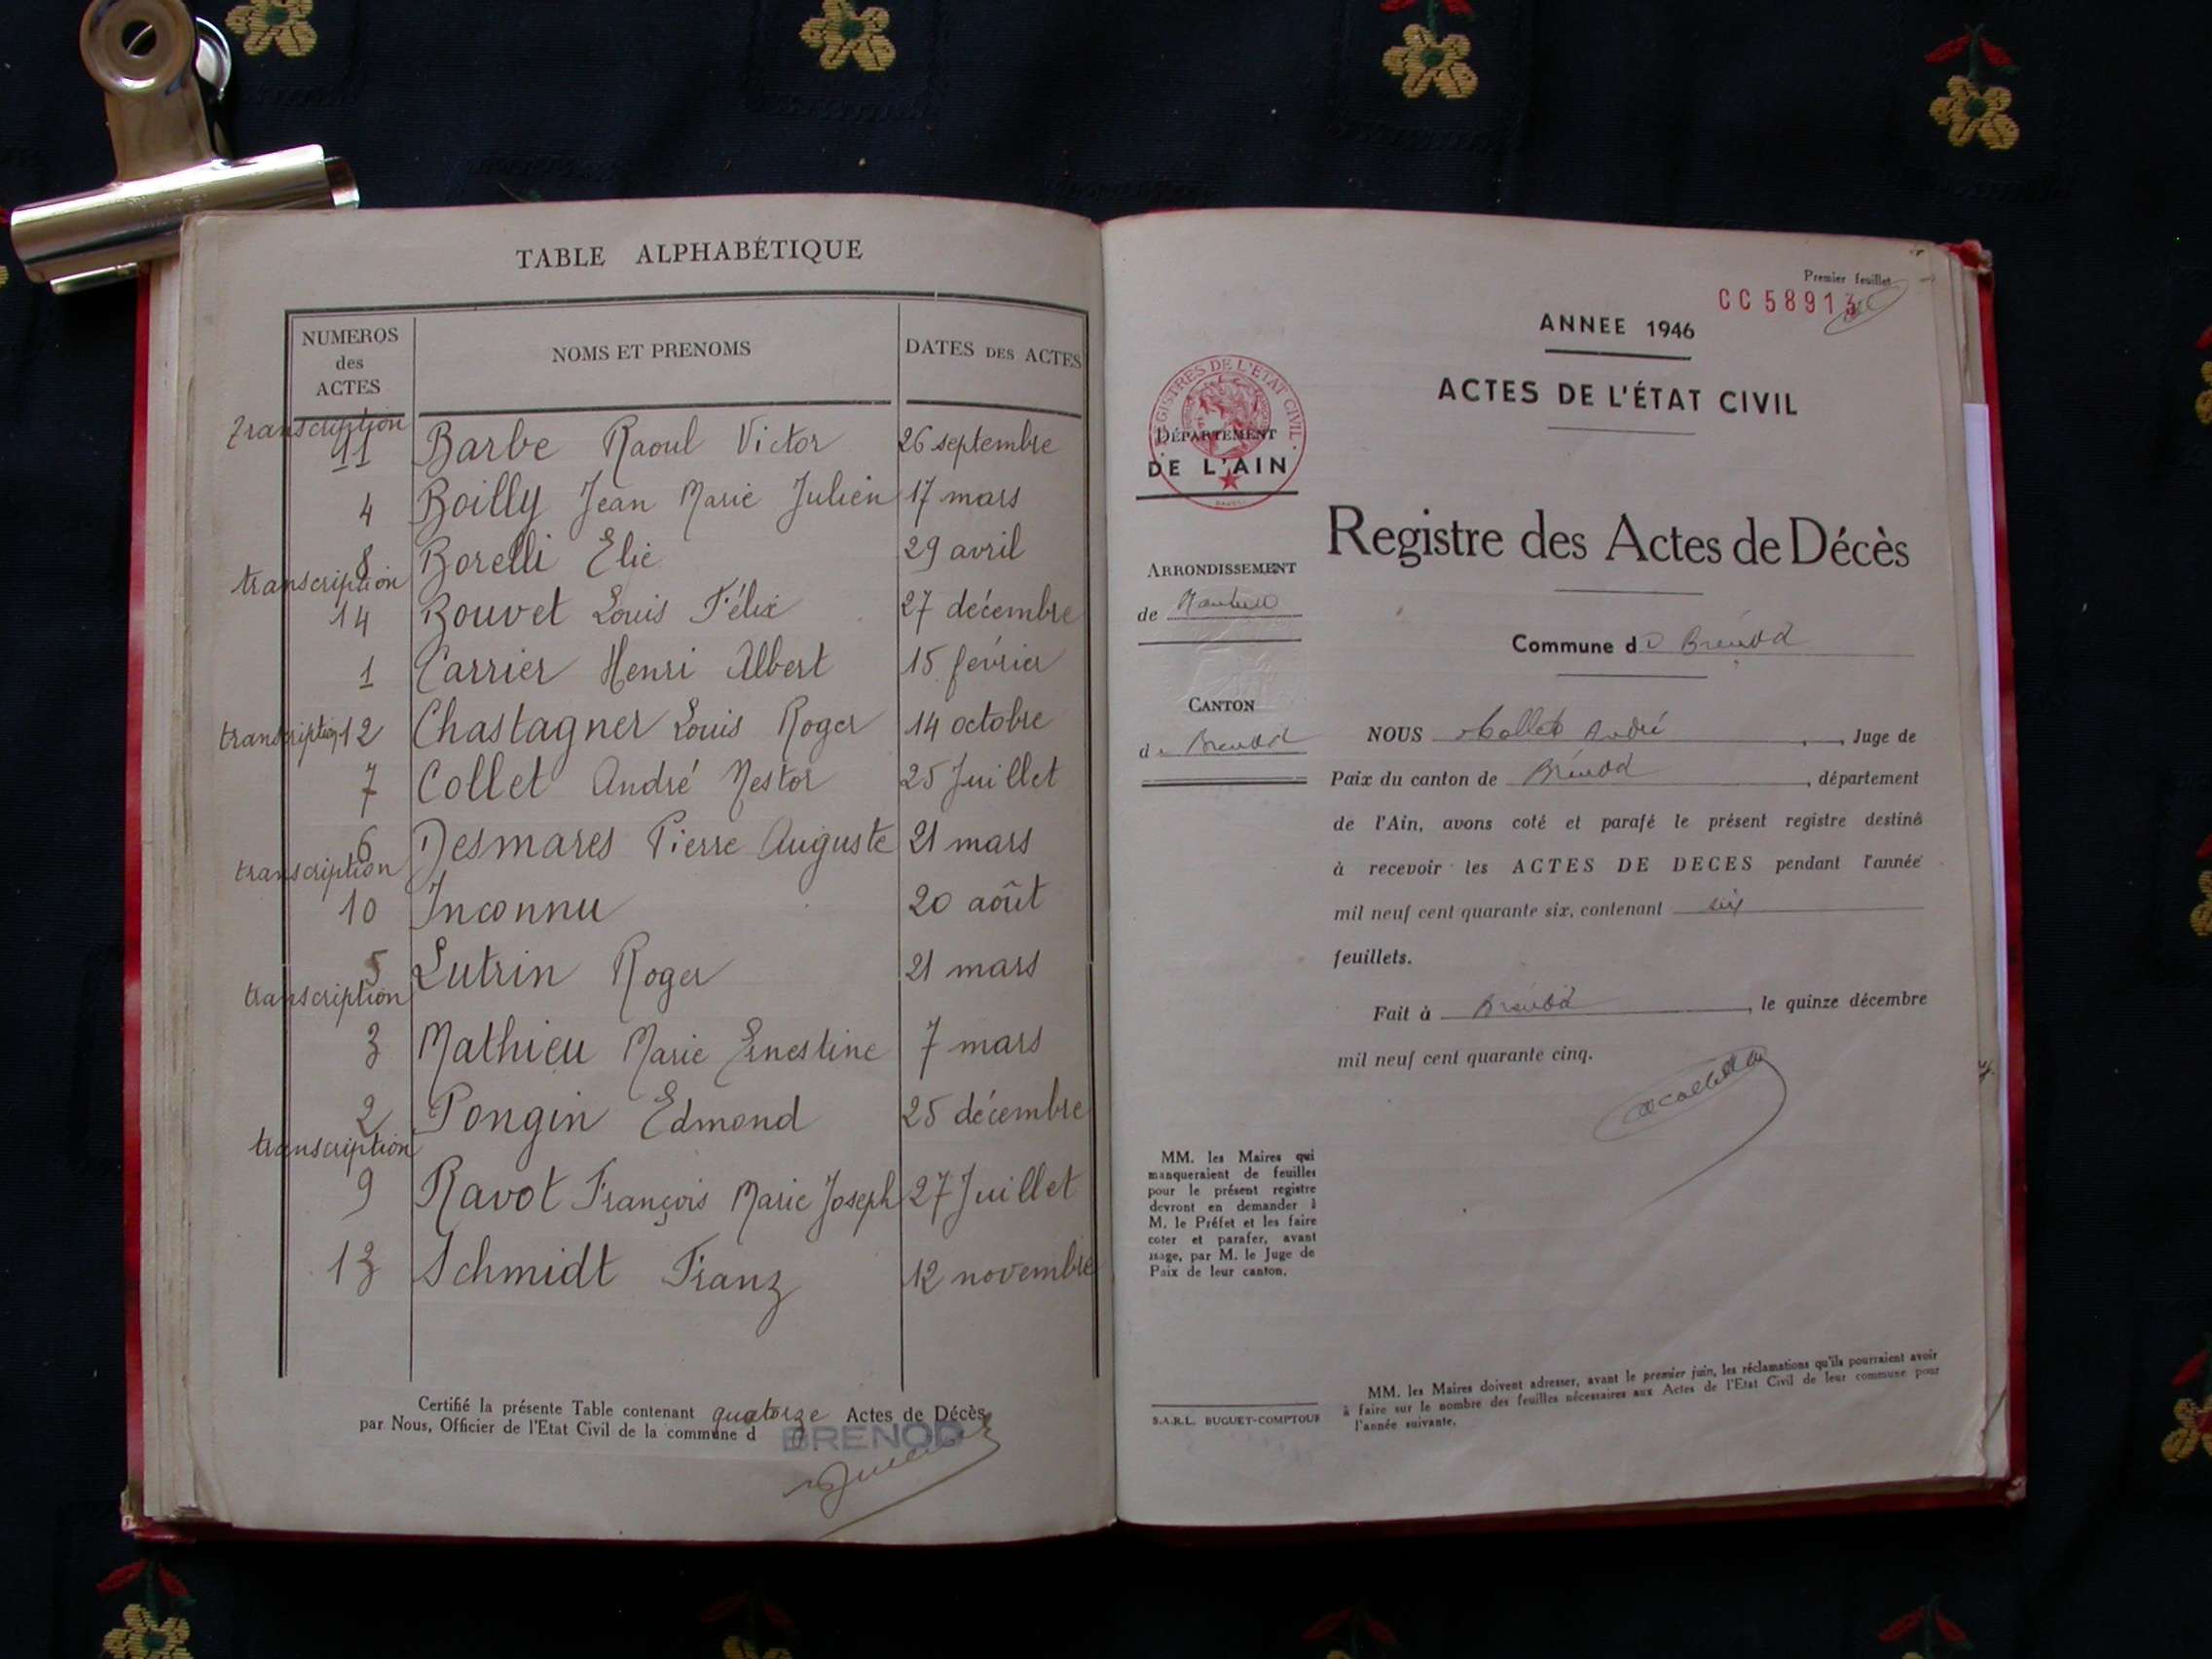 TABLE ALPHABÉTIQUE
NUMEROS des ACTES NOMS ET PRENOMS DATES DES ACTES
transcription
11 Barbe Raoul Victor 26 septembre
4 Boilly Jean Marie Julien 17 mars
8 Borelli Elie 29 avril
transcription
14 Bouvet Louis Félix 27 décembre
1 Carrier Henri Albert 15 février
transcription 12 Chastagner Louis Roger 14 octobre
7 Collet André Nestor 25 Juillet
6 Desmares Pierre Auguste 21 mars
transcription
10 Inconnu 20 août
5 Lutrin Roger 21 mars
transcription
3 Mathieu Marie Ernestine 7 mars
2 Pongin Edmond 25 décembre
transcription
9 Ravot François Marie Joseph 27 Juillet
13 Schmidt Franz 12 novembre
Certifié la présente Table contenant quatorze Actes de Décès
par Nous, Officier de l'Etat Civil de la commune d BRENOD
Premier feuillet
CC 58913
ANNEE 1946
ACTES DE L'ÉTAT CIVIL
REGISTRES DE L'ETAT CIVIL
DÉPARTEMENT
DE L'AIN
Registre des Actes de Décès
ARRONDISSEMENT
de Nantua
Commune de Brénod
CANTON
de Brénod
NOUS Collet André, Juge de
Paix du canton de Brénod, département
de l'Ain, avons coté et parafé le présent registre destiné
à recevoir les ACTES DE DECES pendant l'année
mil neuf cent quarante six, contenant six
feuillets.
Fait à Brénod, le quinze décembre
mil neuf cent quarante cinq.
MM. les Maires qui
manqueraient de feuilles
pour le présent registre
devront en demander à
M. le Préfet et les faire
coter et parafer, avant
usage, par M. le Juge de
Paix de leur canton.
S.A.R.L. BUGUET-COMPTOUR
MM. les Maires doivent adresser, avant le premier juin, les réclamations qu'ils pourraient avoir
à faire sur le nombre des feuilles nécessaires aux Actes de l'Etat Civil de leur commune pour
l'année suivante.